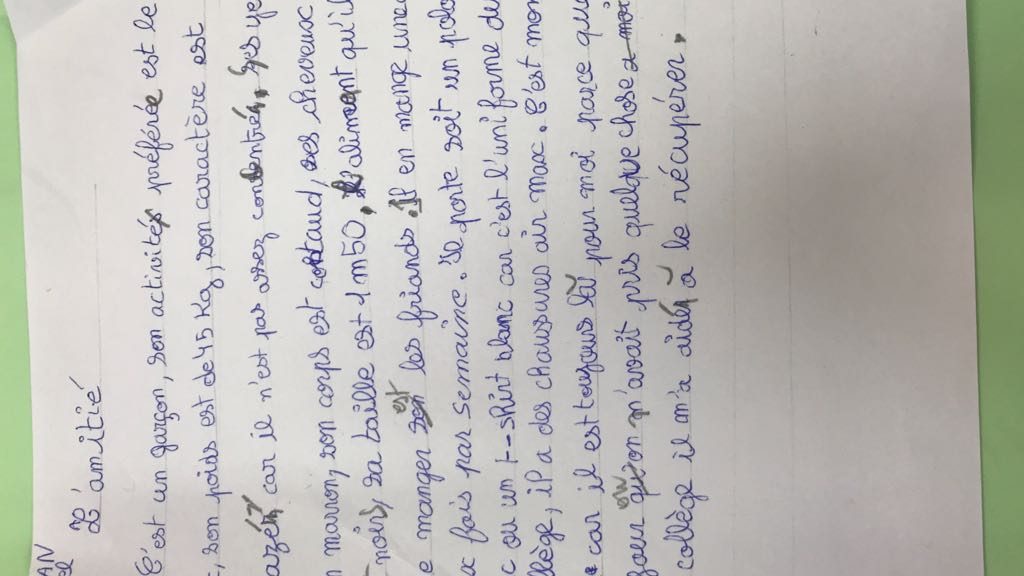 AN
el
L'amitié
C'est un garçon, son activités préférée est le
, son poids est de 45 Kg, son caractère est
car il n'est pas assez concentrée, Ses ye
marron, son corps est costaud, ses cheveux
noirs, sa taille est 1 m 50, L'aliment qu'il
e manger est les friands. Il en mange une
x fois par semaine. Il porte soit un polo
c ou un t-shirt blanc car c'est l'uniforme du
llège, il a des chaussures air max. C'est mon
car il est toujours là pour moi parce que
jour on m'avait pris quelque chose
collège il m'a aidé à le récupérer.